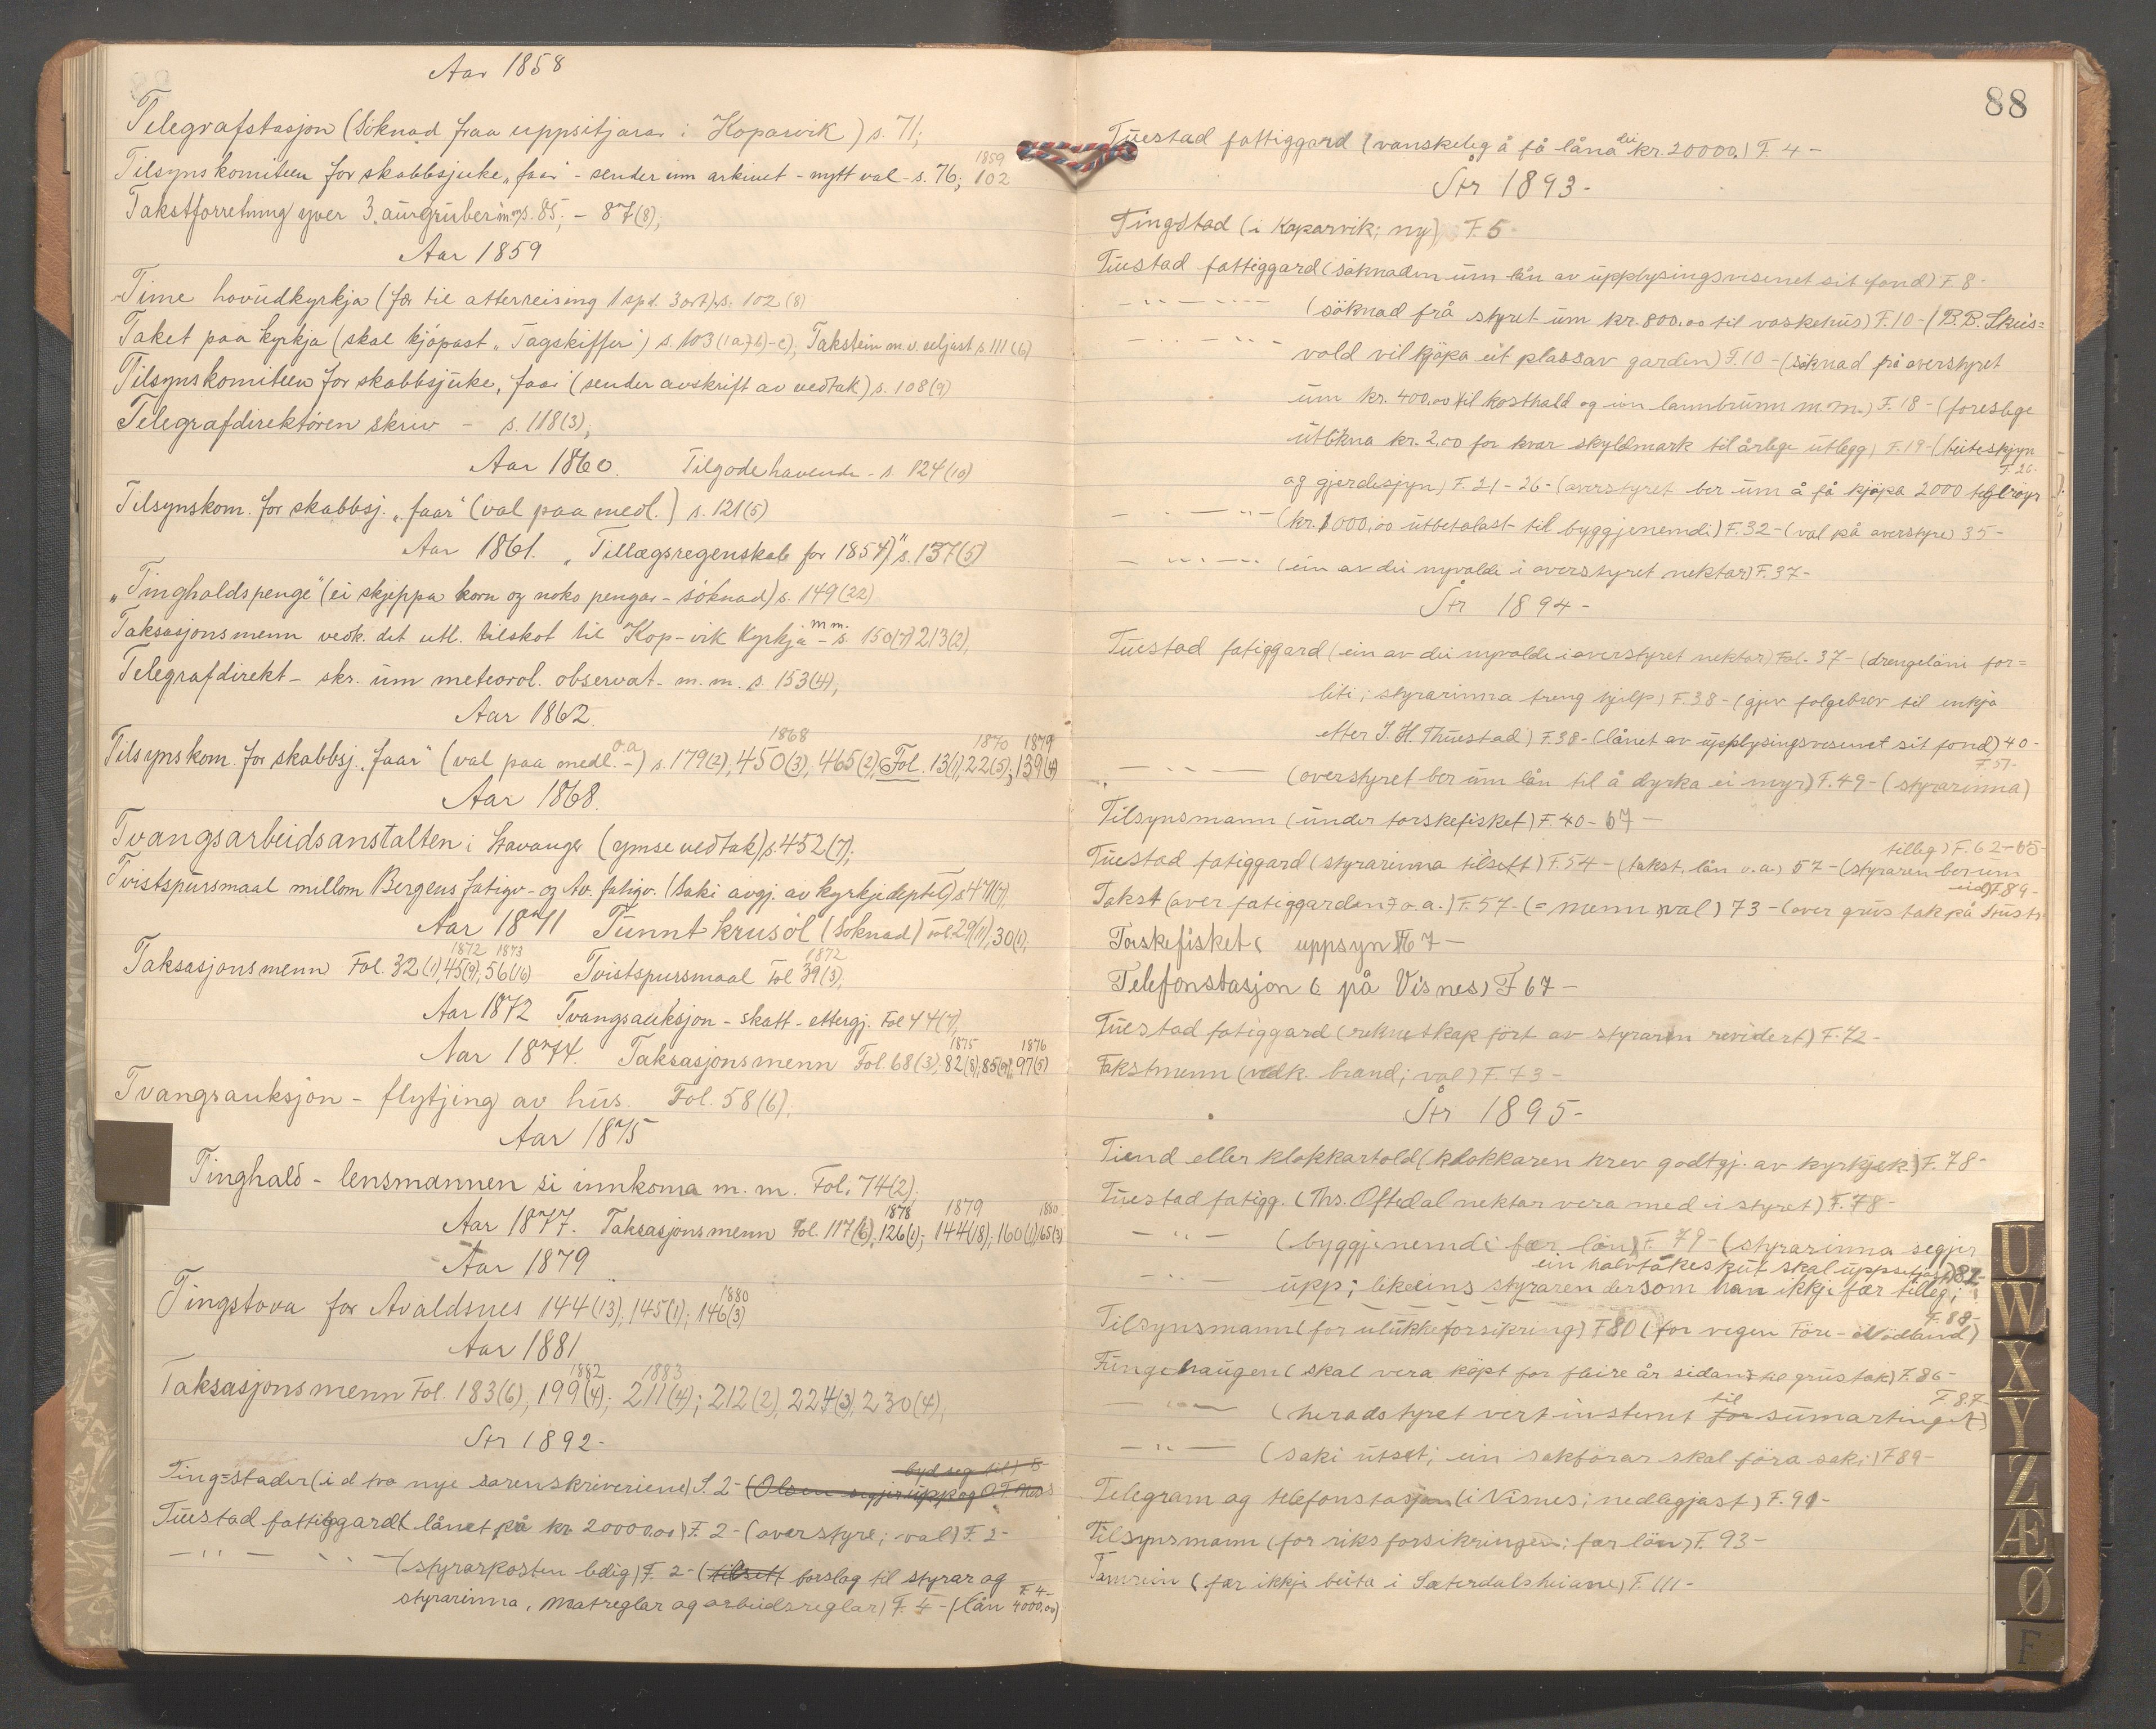 Aar 1858
Telegrafstasjon (Söknad fraa uppsitjarar i Koparvik) s. 71;
1859
Tilsynskomiteen for skabbsjuke „faar“ - sender inn arkivet - nytt val - s. 76; 102
Takstforretning yver 3 aurgruber m.m. s. 85; - 87(8);
Aar 1859
Time hovudkyrkja (før til atterreising 1 spd. 3 ort) s. 102 (8)
Taket paa kyrkja (skal kjöpast „Tagskiffer“) s. 103 (1 a7b)-c), Takstein m.v. seljast s. 111 (6)
Tilsynskomiteen for skabbsjuke „faar“ (sender avskrift av vedtak) s. 108(9)
Telegrafdirektören skriv - s. 118(3);
Aar 1860. Tilgodehavende - s. 124(10)
Tilsynskom. for skabbsj. „faar“ (val paa medl.) s. 121(5)
Aar 1861. „Tillægsregenskab for 1854)“ s. 137(5)
„Tingholdspenge“ (ei skjeppa korn og noko pengar - söknad) s. 149(22)
Taksasjonsmenn vedk. det utl. tilskot til Kop-vik Kyrkja m.m. - s. 150(7) 213(2),
Telegrafdirekt - skr. um meteorol. observat. m. m. s. 153(4);
Aar 1862.
1868 1870 1879
Tilsynskom. for skabbsj. „faar“ (val paa medl. o.a. -) s. 179(2), 450(3), 465(2), Fol. 13(1), 22(5); 139(4)
Aar 1868.
Tvangsarbeidsanstalten i Stavanger (ymse vedtak) s. 452(7);
Tvistspursmaal millom Bergens fatigv- og Av. fatigv. (Saki avgj. av kyrkjedeptet) s 471(7),
Aar 1871 Tunnt krusöl (Söknad) Fol 29(1), 30(1),
1872 1873 1872
Taksasjonsmenn Fol. 32(1), 45(9), 56(16) Tvistspursmaal Fol 39(3),
Aar 1872 Tvangsauksjon - skatt - ettergj. Fol 44(7),
1875 1876
Aar 1874. Taksasjonsmenn Fol. 68(3), 82(8), 85(9), 97(5)
Tvangsauksjon - flytjing av hus. Fol. 58(6),
Aar 1875
Tinghald - lensmannen si innkoma m. m. Fol. 74(2);
1878 1879 1880
Aar 1877. Taksasjonsmenn Fol. 117(6), 126(1); 144(18); 160(1), 165(3)
Aar 1879
1880
Tingstova for Avaldsnes 144(13); 145(1); 146(3)
Aar 1881
1882 1883
Taksasjonsmenn Fol. 183(6), 199(4); 211(4); 212(2), 224(3), 230(4),
År 1892-
byd seg til) 5-
Ting=stader (i d tvo nye sorenskriveriene) S. 2- (Olsen segjer upp og O.T.
Tuestad fattiggardt lånet på kr 20000.00) F. 2- (overstyre; val) F. 2-
— " — " — (styrarposten ledig) F. 2- (tilsett forslag til styrar og
styrarinna, Matreglar og arbeidsreglar) F. 4- (lån 4000.00) F. 4-
88
Tuestad fattiggard (vanskeleg å få låna dei kr. 20000.) F. 4-
År 1893-
Tingstad (i Koparvik; ny) F. 5-
Tuestad fattiggard (söknaden um lån av upplysingsvesenet sit fond) F. 8-
— " — " — (söknad frå styret um kr. 800.00 til vaskehus) F. 10- (B.B. Skeis=
— " — " — vold vil kjöpa eit plass av garden) F. 10- (söknad frå overstyret
um kr. 400.00 til kosthald og ion lannbrunn m.m.) F. 18- (foreslege
utlikna kr. 2.00 for kvar skyldmark til årlege utlegg) F. 19- (beiteskjyn
F. 26-
og gjerdesjyn) F. 21-26- (overstyret ber um å få kjöpa 2000 teglröyr
— " — " — (kr. 1000.00 utbetalast til byggjenemdi) F. 32- (val på overstyre) 35-
— " — " — (ein av dei nyvalde i overstyret nektar) F. 37-
År 1894-
Tuestad fatiggard (ein av dei nyvalde i overstyret nektar) Fol. 37- (drengeløni for=
liti; styrarinna treng hjelp) F. 38- (gjev folgebrev til enkja
etter J. H. Thuestad) F. 38- (lånet av upplysingsvesenet sit fond) 40-
F 51-
" — " — (overstyret ber um lån til å dyrka ei myr) F. 49- (styrarinna)
Tilsynsmann (under torskefisket) F. 40-67-
tilleg) F. 62-65-
Tuestad fatiggard (styrarinna tilsett) F. 54- (takst, lån o.a.) 57- (styraren ber um
F 89-
Takst (over fatiggarden o.a.) F. 57- (= menn val) 73- (over grustak på
Torskefisket ( uppsyn F 67-
Telefonstasjon (på Visnes) F 67-
Tuestad fatiggard (reknetskap fört av styraren revidert) F. 72-
Takstmenn (vedk. brand; val) F. 73-
År 1895-
Tiend eller klokkartold (klokkaren krev godtgj. av kyrkjek) F. 78-
Tuestad fatigg. (Ths. Oftedal nektar vera med i styret) F. 78-
— " — (byggjenemdi får lön) F. 79- (styrarinna segjer
ein halvtakeskut skal uppsetjast) 82-
— " — upp; likeeins styraren dersom han ikkje fær tilleg;
F. 88-
Tilsynsmann (for ulukkeforsikring) F 80 (for vegen Före-Nödland)
Tungehaugen (skal vera köpt for fleire år sidan til grustak) F. 86-
F 87-
— " — (heradstyret vert instemt for til sumartinget)
— " — (saki utset; ein sakförar skal föra saki) F 89-
Telegram og telefonstasjon (i Visnes; nedlegjast) F. 91-
Tilsynsmann (for riksforsikringen; fær lön) F. 93-
Tamrein (fær ikkje beita i Sæterdalsheiane) F. 111-
U
W
X
Y
Z
Æ
Ø
F